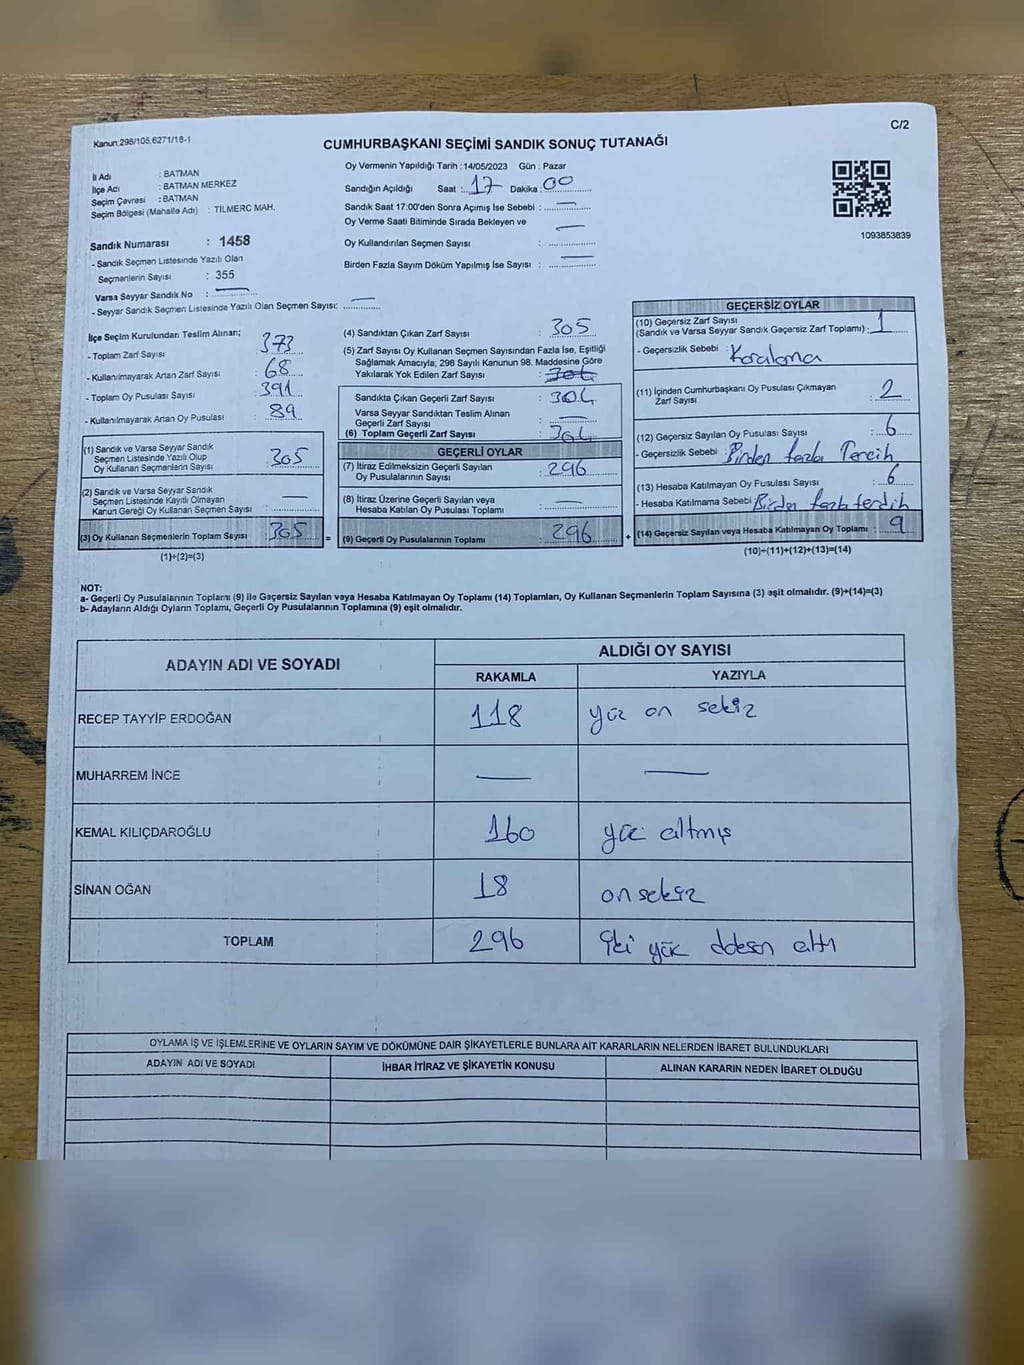 Kanun:298/105:6271/18-1
C/2
CUMHURBAŞKANI SEÇİMİ SANDIK SONUÇ TUTANAĞI
İl Adı : BATMAN
İlçe Adı : BATMAN MERKEZ
Seçim Çevresi : BATMAN
Seçim Bölgesi (Mahalle Adı) : TİLMERC MAH.
Sandık Numarası : 1458
- Sandık Seçmen Listesinde Yazılı Olan
Seçmenlerin Sayısı : 355
Varsa Seyyar Sandık No : —
- Seyyar Sandık Seçmen Listesinde Yazılı Olan Seçmen Sayısı: —
Oy Vermenin Yapıldığı Tarih :14/05/2023 Gün : Pazar
Sandığın Açıldığı Saat : 17 Dakika : 00
Sandık Saat 17:00'den Sonra Açımış İse Sebebi : —
Oy Verme Saati Bitiminde Sırada Bekleyen ve —
Oy Kullandırılan Seçmen Sayısı :
Birden Fazla Sayım Döküm Yapılmış İse Sayısı : —
1093853839
İlçe Seçim Kurulundan Teslim Alınan;
- Toplam Zarf Sayısı : 373
- Kullanılmayarak Artan Zarf Sayısı : 68
- Toplam Oy Pusulası Sayısı : 391
- Kullanılmayarak Artan Oy Pusulası : 89
(1) Sandık ve Varsa Seyyar Sandık
Seçmen Listesinde Yazılı Olup
Oy Kullanan Seçmenlerin Sayısı : 305
(2) Sandık ve Varsa Seyyar Sandık
Seçmen Listesinde Kayıtlı Olmayan
Kanun Gereği Oy Kullanan Seçmen Sayısı : —
(3) Oy Kullanan Seçmenlerin Toplam Sayısı : 305
(1)+(2)=(3)
(4) Sandıktan Çıkan Zarf Sayısı : 305
(5) Zarf Sayısı Oy Kullanan Seçmen Sayısından Fazla İse, Eşitliği
Sağlamak Amacıyla; 298 Sayılı Kanunun 98. Maddesine Göre
Yakılarak Yok Edilen Zarf Sayısı : 304
Sandıkta Çıkan Geçerli Zarf Sayısı : 304
Varsa Seyyar Sandıktan Teslim Alınan
Geçerli Zarf Sayısı : —
(6) Toplam Geçerli Zarf Sayısı : 304
GEÇERLİ OYLAR
(7) İtiraz Edilmeksizin Geçerli Sayılan
Oy Pusulalarının Sayısı : 296
(8) İtiraz Üzerine Geçerli Sayılan veya
Hesaba Katılan Oy Pusulası Toplamı :
(9) Geçerli Oy Pusulalarının Toplamı : 296
=
+
GEÇERSİZ OYLAR
(10) Geçersiz Zarf Sayısı
(Sandık ve Varsa Seyyar Sandık Geçersiz Zarf Toplamı) : 1
- Geçersizlik Sebebi : Karalama
(11) İçinden Cumhurbaşkanı Oy Pusulası Çıkmayan
Zarf Sayısı : 2
(12) Geçersiz Sayılan Oy Pusulası Sayısı : 6
- Geçersizlik Sebebi : Birden fazla Tercih
(13) Hesaba Katılmayan Oy Pusulası Sayısı : 6
- Hesaba Katılmama Sebebi : Birden fazla tercih
(14) Geçersiz Sayılan veya Hesaba Katılmayan Oy Toplamı : 9
(10)+(11)+(12)+(13)=(14)
NOT:
a- Geçerli Oy Pusulalarının Toplamı (9) ile Geçersiz Sayılan veya Hesaba Katılmayan Oy Toplamı (14) Toplamları, Oy Kullanan Seçmenlerin Toplam Sayısına (3) eşit olmalıdır. (9)+(14)=(3)
b- Adayların Aldığı Oyların Toplamı, Geçerli Oy Pusulalarının Toplamına (9) eşit olmalıdır.
ADAYIN ADI VE SOYADI
ALDIĞI OY SAYISI
RAKAMLA YAZIYLA
RECEP TAYYİP ERDOĞAN 118 yüz on sekiz
MUHARREM İNCE — —
KEMAL KILIÇDAROĞLU 160 yüz altmış
SİNAN OĞAN 18 on sekiz
TOPLAM 296 iki yüz ddosan altı
OYLAMA İŞ VE İŞLEMLERİNE VE OYLARIN SAYIM VE DÖKÜMÜNE DAİR ŞİKAYETLERLE BUNLARA AİT KARARLARIN NELERDEN İBARET BULUNDUKLARI
ADAYIN ADI VE SOYADI İHBAR İTİRAZ VE ŞİKAYETİN KONUSU ALINAN KARARIN NEDEN İBARET OLDUĞU